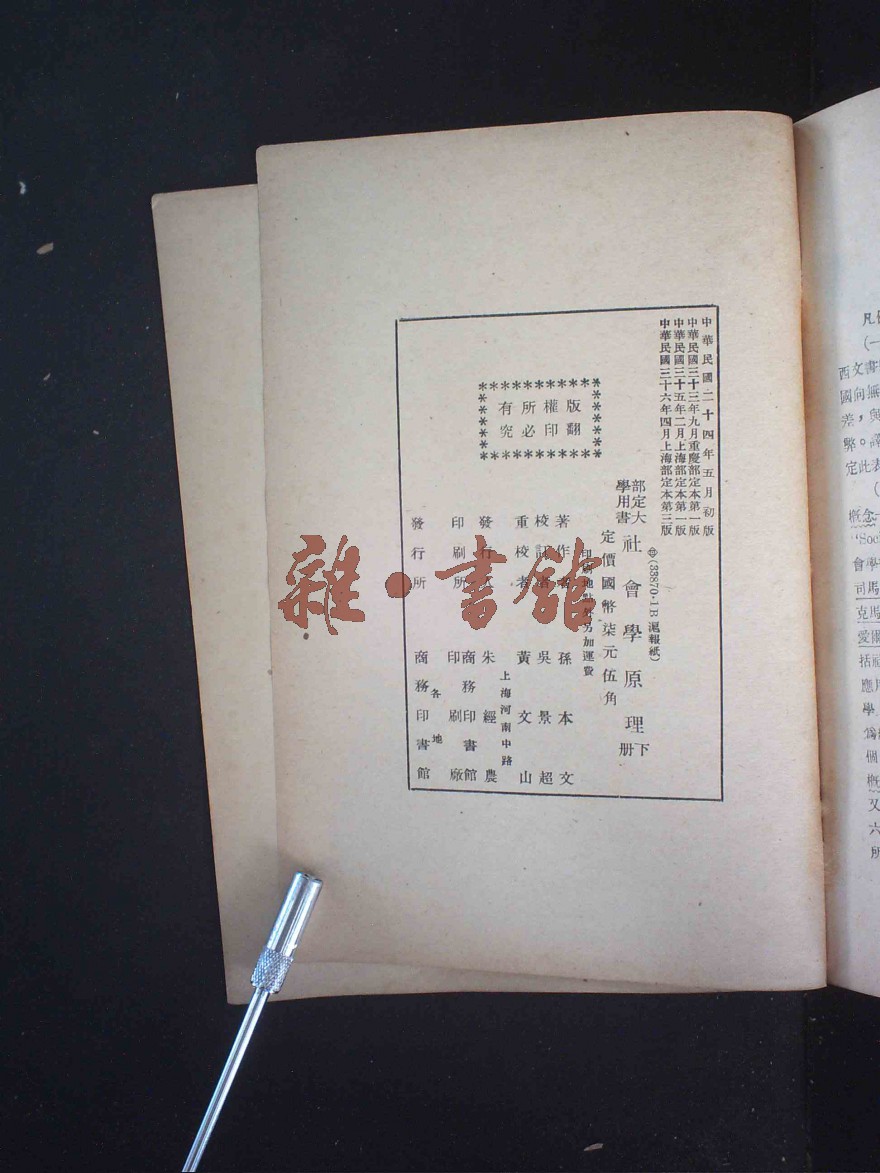 中華民國二十四年五月初版
中華民國三十三年九月重慶部定本第一版
中華民國三十五年二月上海部定本第一版
中華民國三十六年四月上海部定本第三版
(33870·1B滬報紙)
部定大學用書 社會學原理 下册
定價國幣柒元伍角
印刷地點外另加運費
版權所有
翻印必究
著作者 孫本文
校訂者 吳景超
重校者 黃文山
上海河南中路
發行人 朱經農
印刷所 商務印書館印刷廠
各地
發行所 商務印書館
雜·書館
凡
(一
西文書
國向無
差，與
弊。譯
定此表
概念
"Soc
會學
司馬
克馬
愛爾
括
應用
學
爲
個
概
又
六
所